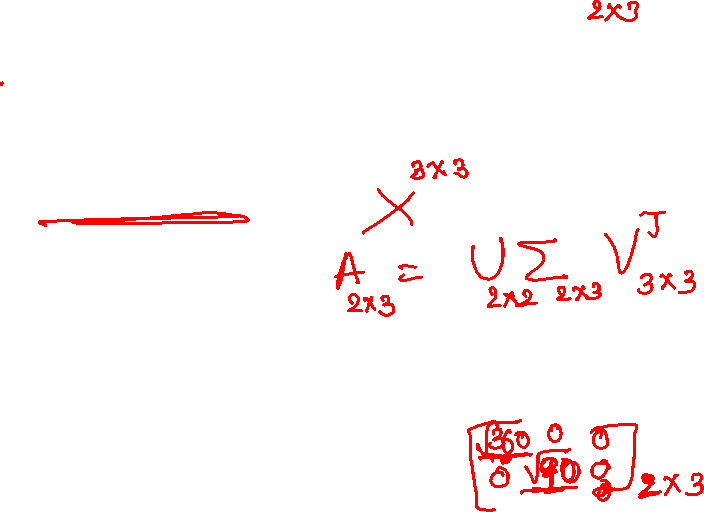 2×3
3×3
A 2×3 = U 2×2 Σ 2×3 V^T 3×3
[√360 0 0
0 √90 0] 2×3